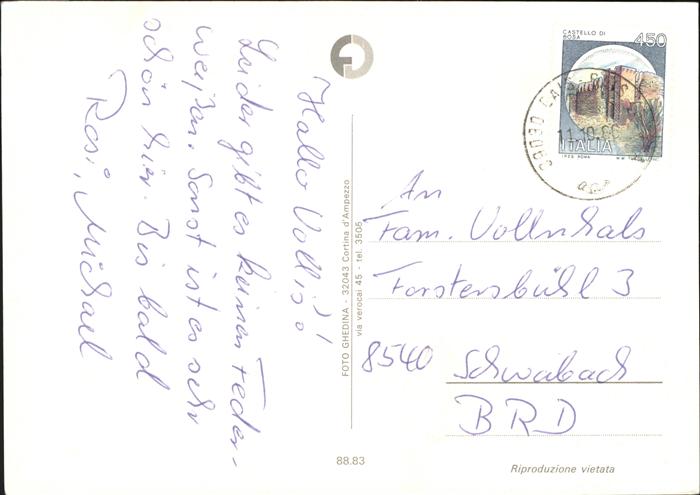 Hallo Vollis!
Leider gibt es keinen Feder-
weißen. Sonst ist es sehr
schön hier. Bis bald
Rosi, Michael
FOTO GHEDINA - 32043 Cortina d'Ampezzo
via verocai 45 - tel. 3505
88.83
CASTELLO DI
BOSA
450
ITALIA
I.P.Z.S. ROMA
39030
11-10
An
Fam. Vollnhals
Forstersbühl 3
8540 Schwabach
BRD
Riproduzione vietata